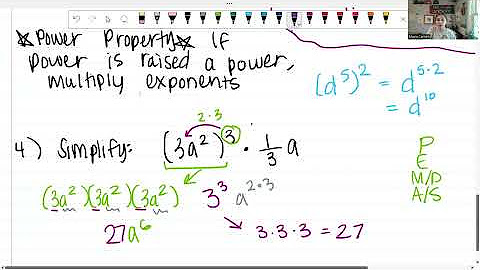 *Power Property* If
power is raised a power,
multiply exponents
(d⁵)² = d⁵·²
= d¹⁰
2·3
4) Simplify: (3a²)³ · 1/3 a
(3a²)(3a²)(3a²) 3³ a²·³
27a⁶ → 3·3·3 = 27
P
E
M/D
A/S